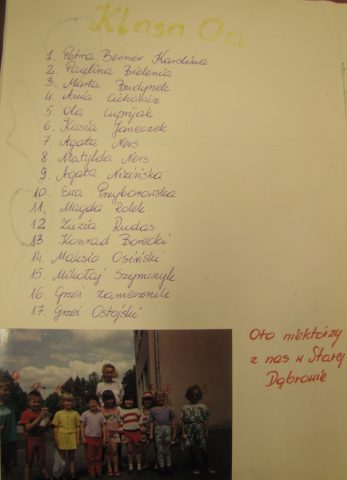 Klasa Oa
1. Petra Berner Karolina
2. Paulina Bielenia
3. Marta Budynek
4. Ania
5. Ola Cupryjak
6. Kasia Janeczek
7. Agata Ners
8. Matylda Ners
9. Agata Nizińska
10. Ewa Przyborowska
11. Magda Rolek
12. Zuzia Rudas
13. Konrad Borecki
14. Maksio Osiński
15. Mikołaj Szymczyk
16. Grześ Zamecznik
17. Grześ Ostojski
Oto niektórzy
z nas w Starej
Dąbrowie